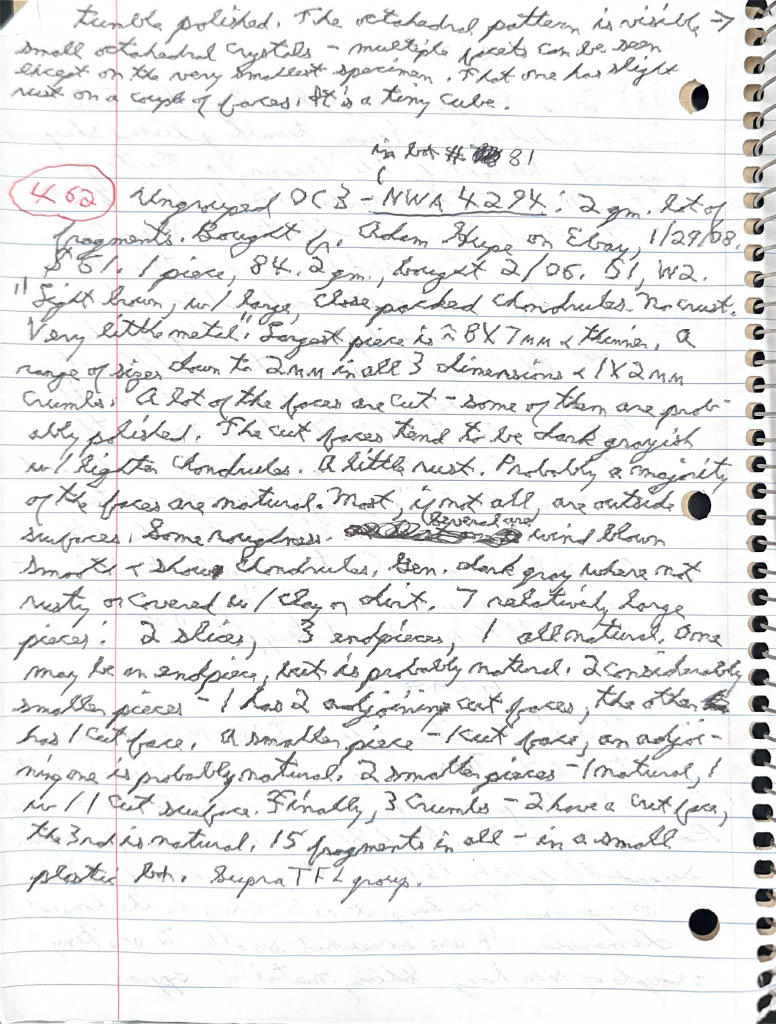 tumble polished. The octahedral pattern is visible →
small octahedral crystals - multiple facets can be seen
except on the very smallest specimen. That one has slight
rust on a couple of faces. It's a tiny cube.
in bot # 81
462 Ungrouped OC3 - NWA 4294: 2 gm. lot of
fragments. Bought fr. Adam Hupe on Ebay, 1/29/08.
$51. 1 piece, 84.2 gm., bought 2/06. S1, W2.
"Light brown, w/ large, close packed chondrules. No crust.
Very little metal". Largest piece is ≈ 8X7mm & thinner. A
range of sizes down to 2mm in all 3 dimensions & 1X2mm
crumbs. A lot of the faces are cut - some of them are prob-
ably polished. The cut faces tend to be dark grayish
w/ lighter chondrules. A little rust. Probably a majority
of the faces are natural. Most, if not all, are outside
surfaces. Some roughness. several are wind blown
smooth & show chondrules. Gen. dark gray where not
rusty or covered w/ clay or dirt. 7 relatively large
pieces: 2 slices, 3 endpieces, 1 all natural. One
may be an endpiece, but is probably natural. 2 considerably
smaller pieces - 1 has 2 adjoining cut faces, the other
has 1 cut face. A smaller piece - 1 cut face, an adjoi-
ning one is probably natural. 2 smaller pieces - 1 natural, 1
w/ 1 cut surface. Finally, 3 crumbs - 2 have a cut face,
the 3rd is natural. 15 fragments in all - in a small
plastic bot. Supra TFL group.